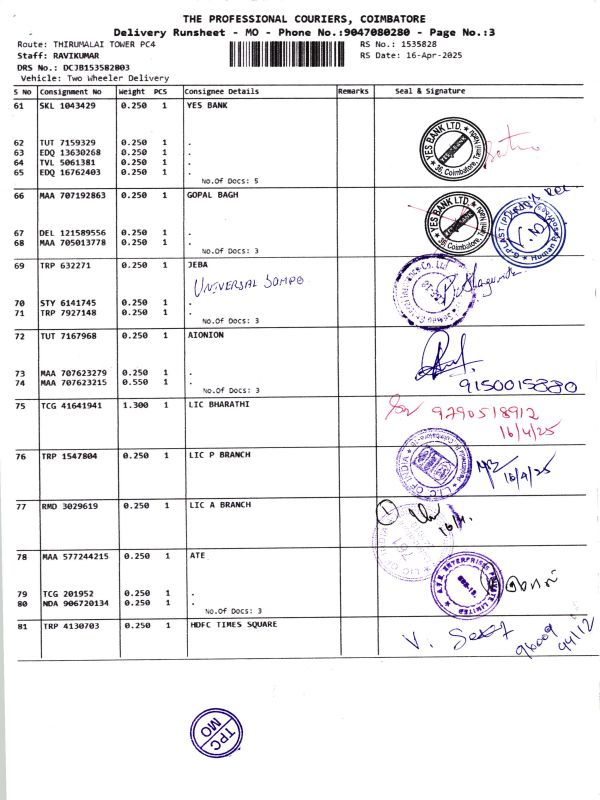 THE PROFESSIONAL COURIERS, COIMBATORE
Delivery Runsheet - MO - Phone No.:9047080280 - Page No.:3
Route: THIRUMALAI TOWER PC4 RS No.: 1535828
Staff: RAVIKUMAR RS Date: 16-Apr-2025
DRS No.: DCJB153582803
Vehicle: Two Wheeler Delivery
S No Consignment No Weight PCS Consignee Details Remarks Seal & Signature
61 SKL 1043429 0.250 1 YES BANK
62 TUT 7159329 0.250 1 .
63 EDQ 13630268 0.250 1 .
64 TVL 5061381 0.250 1 .
65 EDQ 16762403 0.250 1 .
No.Of Docs: 5
YES BANK LTD. * 36, Coimbatore, Tamil Nadu
66 MAA 707192863 0.250 1 GOPAL BAGH
67 DEL 121589556 0.250 1 .
68 MAA 705013778 0.250 1 .
No.Of Docs: 3
YES BANK LTD. * 36, Coimbatore, Tamil Nadu
69 TRP 632271 0.250 1 JEBA
UNIVERSAL SOMPO
70 STY 6141745 0.250 1 .
71 TRP 7927148 0.250 1 .
No.Of Docs: 3
72 TUT 7167968 0.250 1 AIONION
73 MAA 707623279 0.250 1 .
74 MAA 707623215 0.550 1 .
No.Of Docs: 3
9150015880
75 TCG 41641941 1.300 1 LIC BHARATHI
9290518912
16/4/25
76 TRP 1547804 0.250 1 LIC P BRANCH
LIC OF INDIA
16/4/25
77 RMD 3029619 0.250 1 LIC A BRANCH
1
16/4
LIC OF INDIA
761
78 MAA 577244215 0.250 1 ATE
79 TCG 201952 0.250 1 .
80 NDA 906720134 0.250 1 .
No.Of Docs: 3
ENTERPRISES PRIVATE LIMITED
81 TRP 4130703 0.250 1 HDFC TIMES SQUARE
TPC
MO